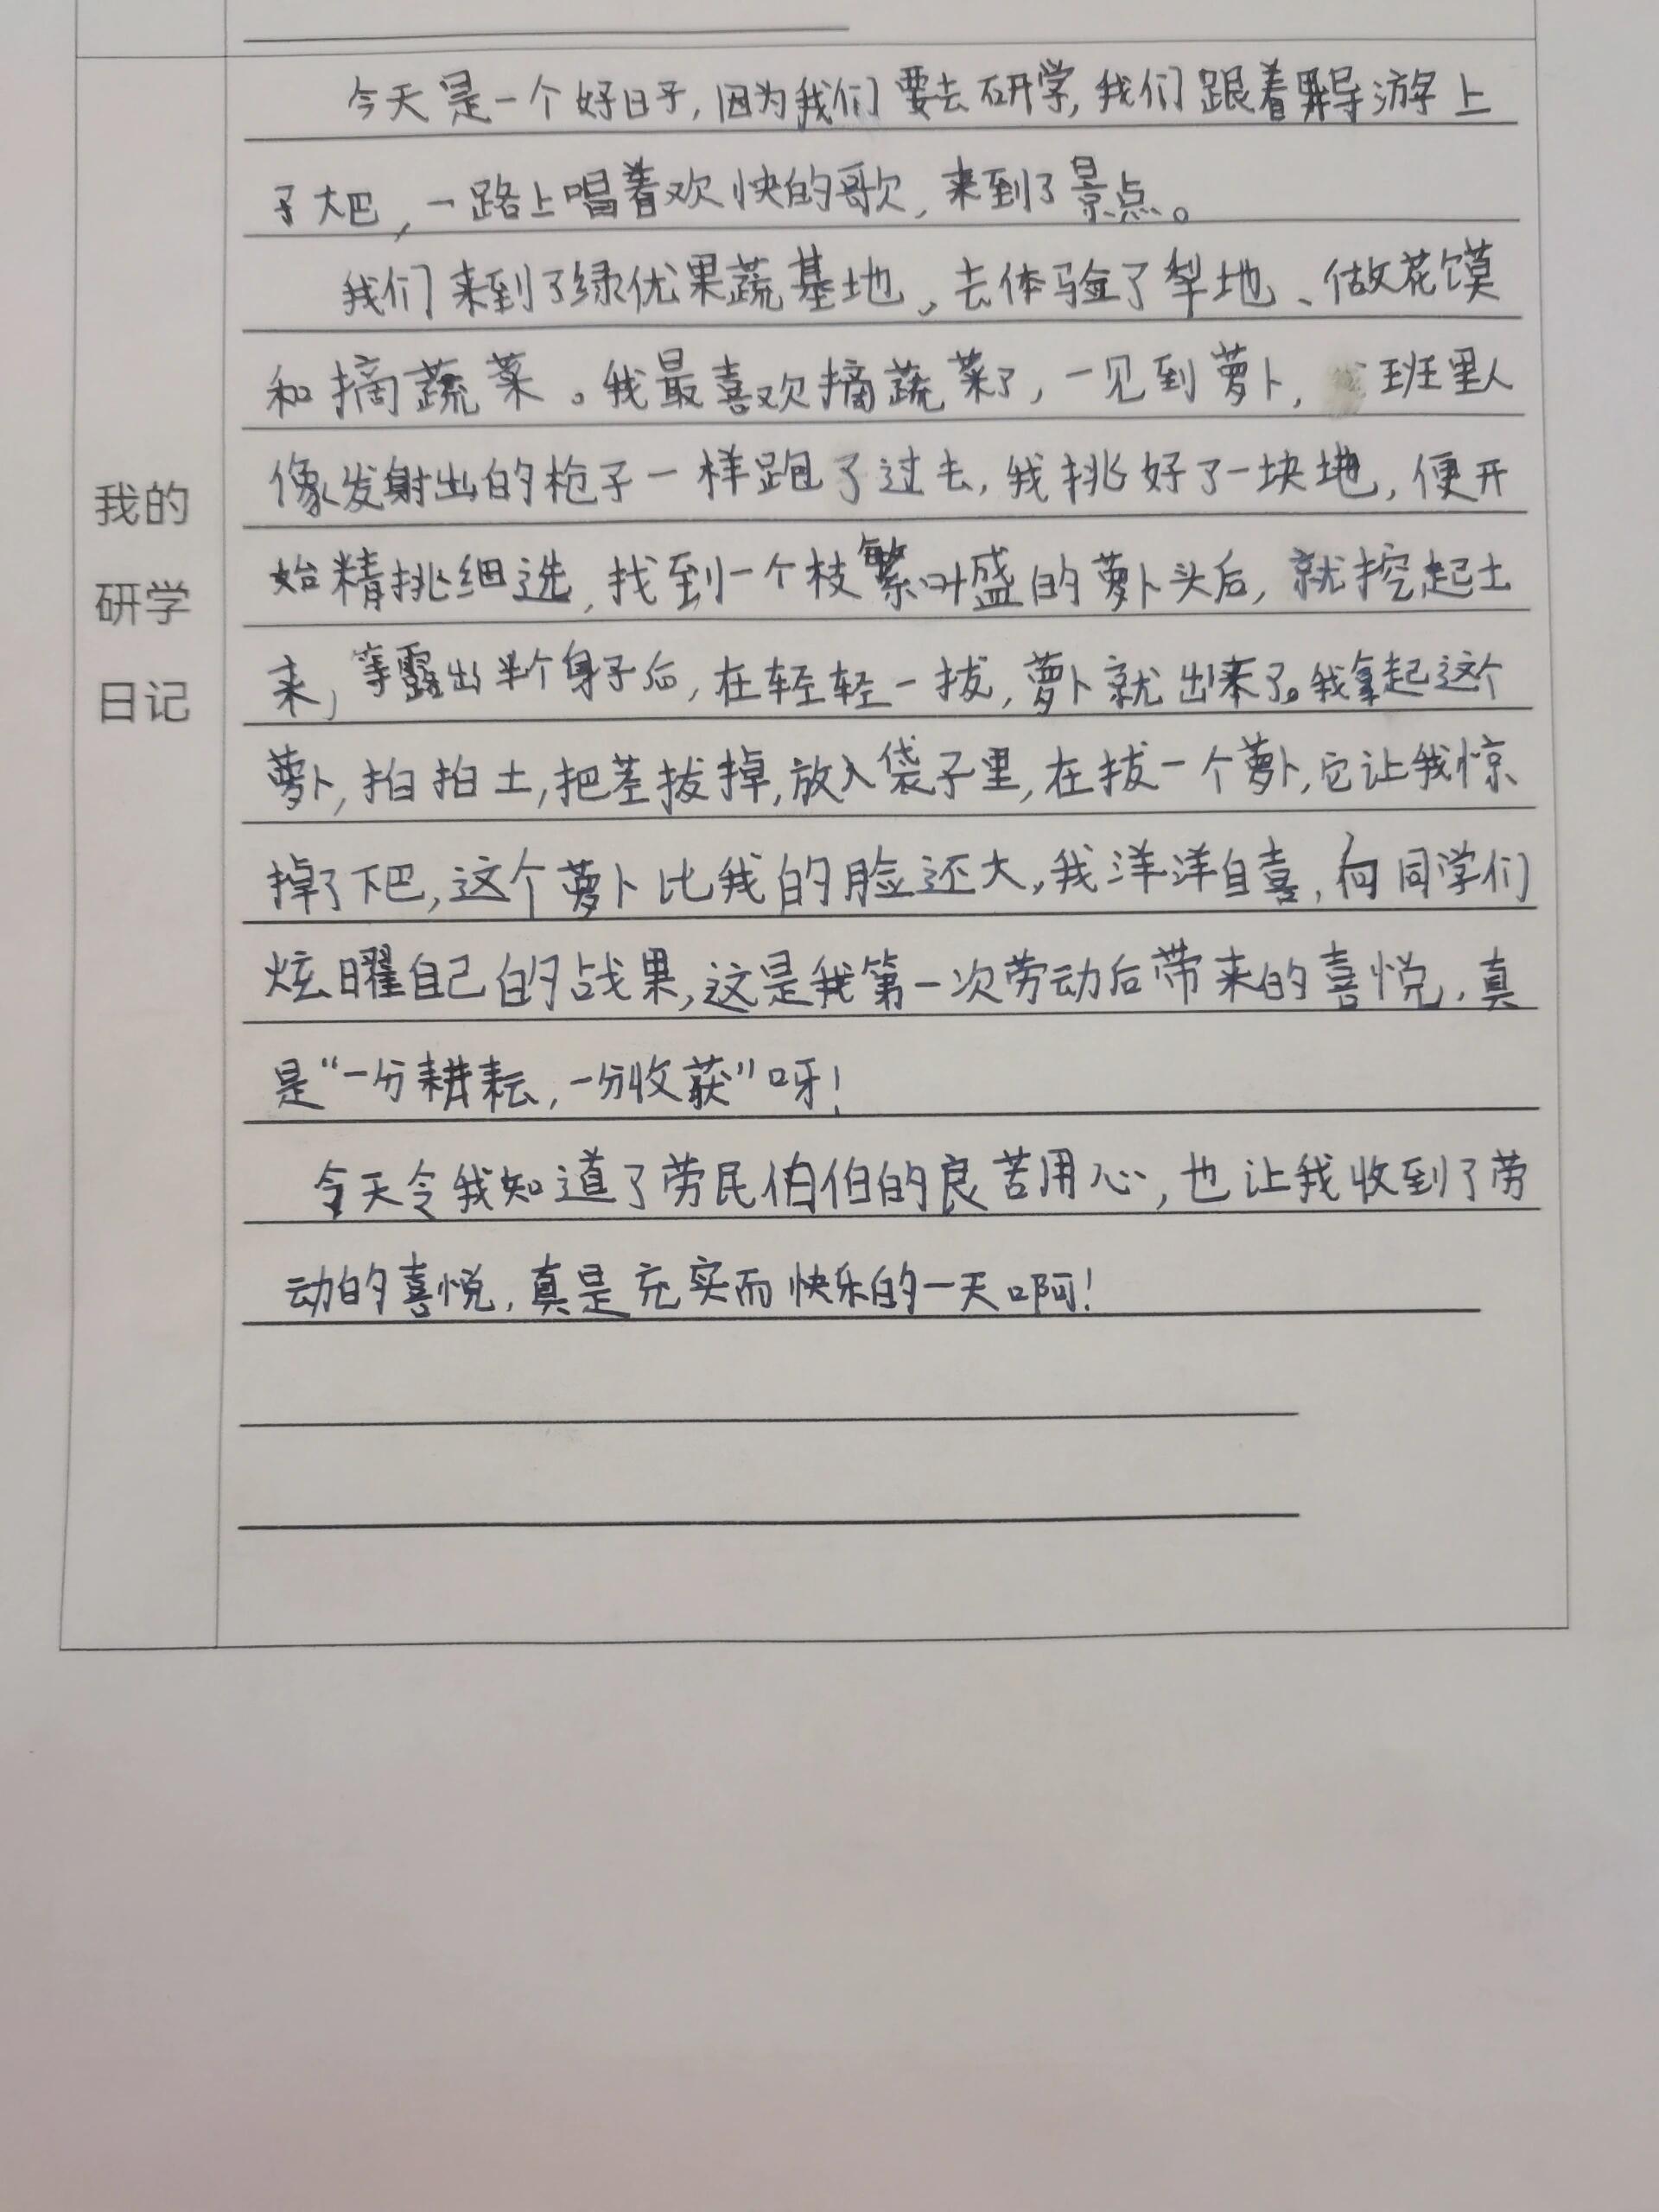 今天是一个好日子,因为我们要去研学,我们跟着导游上
了大巴,一路上唱着欢快的歌,来到了景点。
我们来到了绿优果蔬基地,去体验了犁地、做花馍
和摘蔬菜。我最喜欢摘蔬菜了,一见到萝卜,班里人
像发射出的枪子一样跑了过去,我挑好了一块地,便开
始精挑细选,找到一个枝繁叶盛的萝卜头后,就挖起土
来,等露出半个身子后,在轻轻一拔,萝卜就出来了。我拿起这个
萝卜,拍拍土,把茎拔掉,放入袋子里,在拔一个萝卜,它让我惊
掉了下巴,这个萝卜比我的脸还大,我洋洋自喜,向同学们
炫曜自己的战果,这是我第一次劳动后带来的喜悦,真
是“一分耕耘,一分收获”呀!
今天令我知道了劳民伯伯的良苦用心,也让我收到了劳
动的喜悦,真是充实而快乐的一天啊!
我的
研学
日记